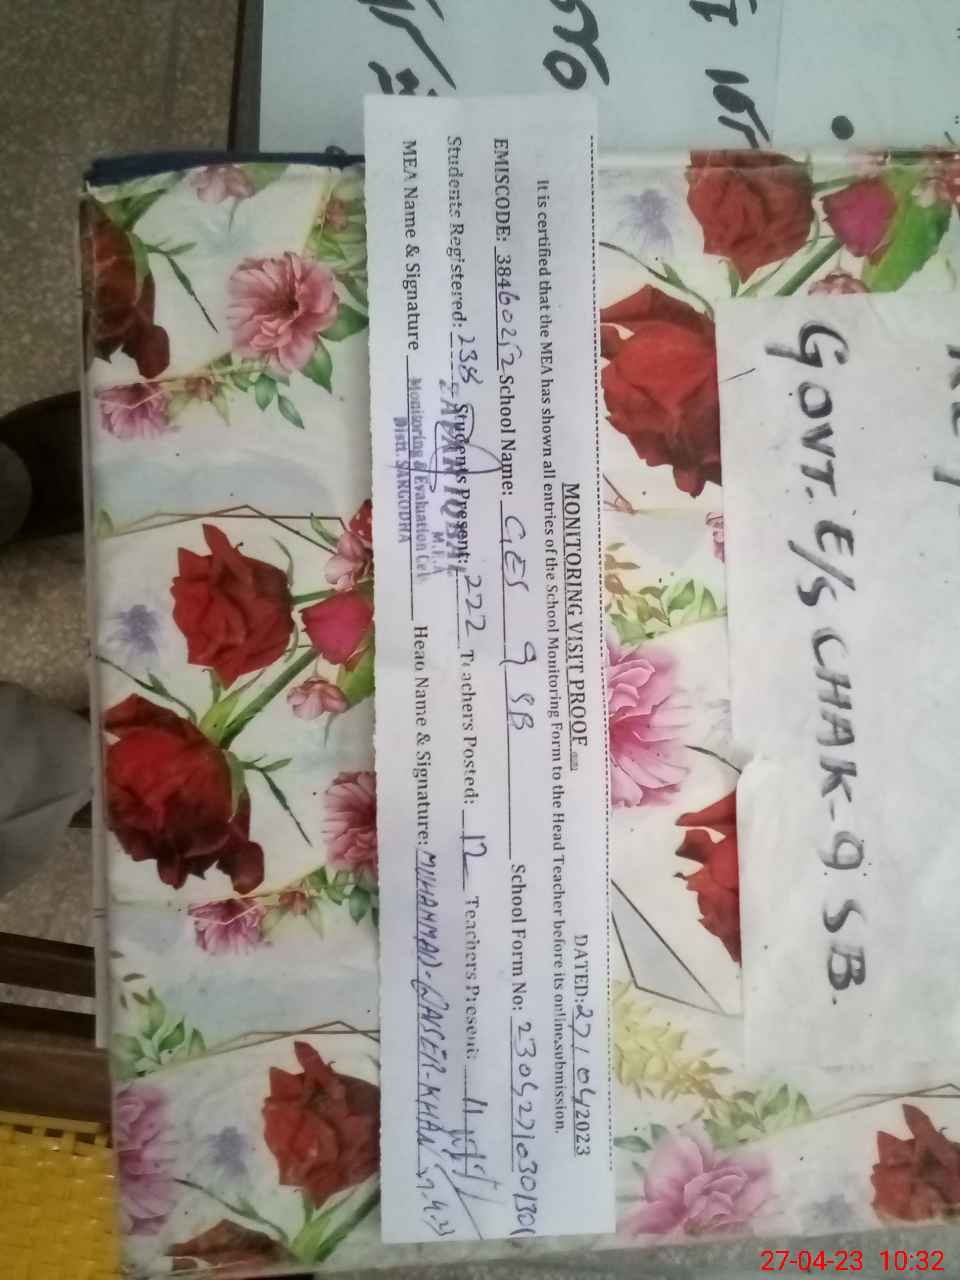 MONITORING VISIT PROOF
DATED: 27/04/2023
It is certified that the MEA has shown all entries of the School Monitoring Form to the Head Teacher before its online submission.
EMISCODE: 38460212 School Name: GES 9 SB School Form No:
Students Registered: 238 Students Present: 222 Teachers Posted: 12 Teachers Present: 11
MEA Name & Signature Head Name & Signature: MUHAMMAD KHAN
M.E.A
Monitoring & Evaluation Cell
Distt. SARGODHA
GOVT. E/S CHAK-9 SB.
27-04-23 10:32